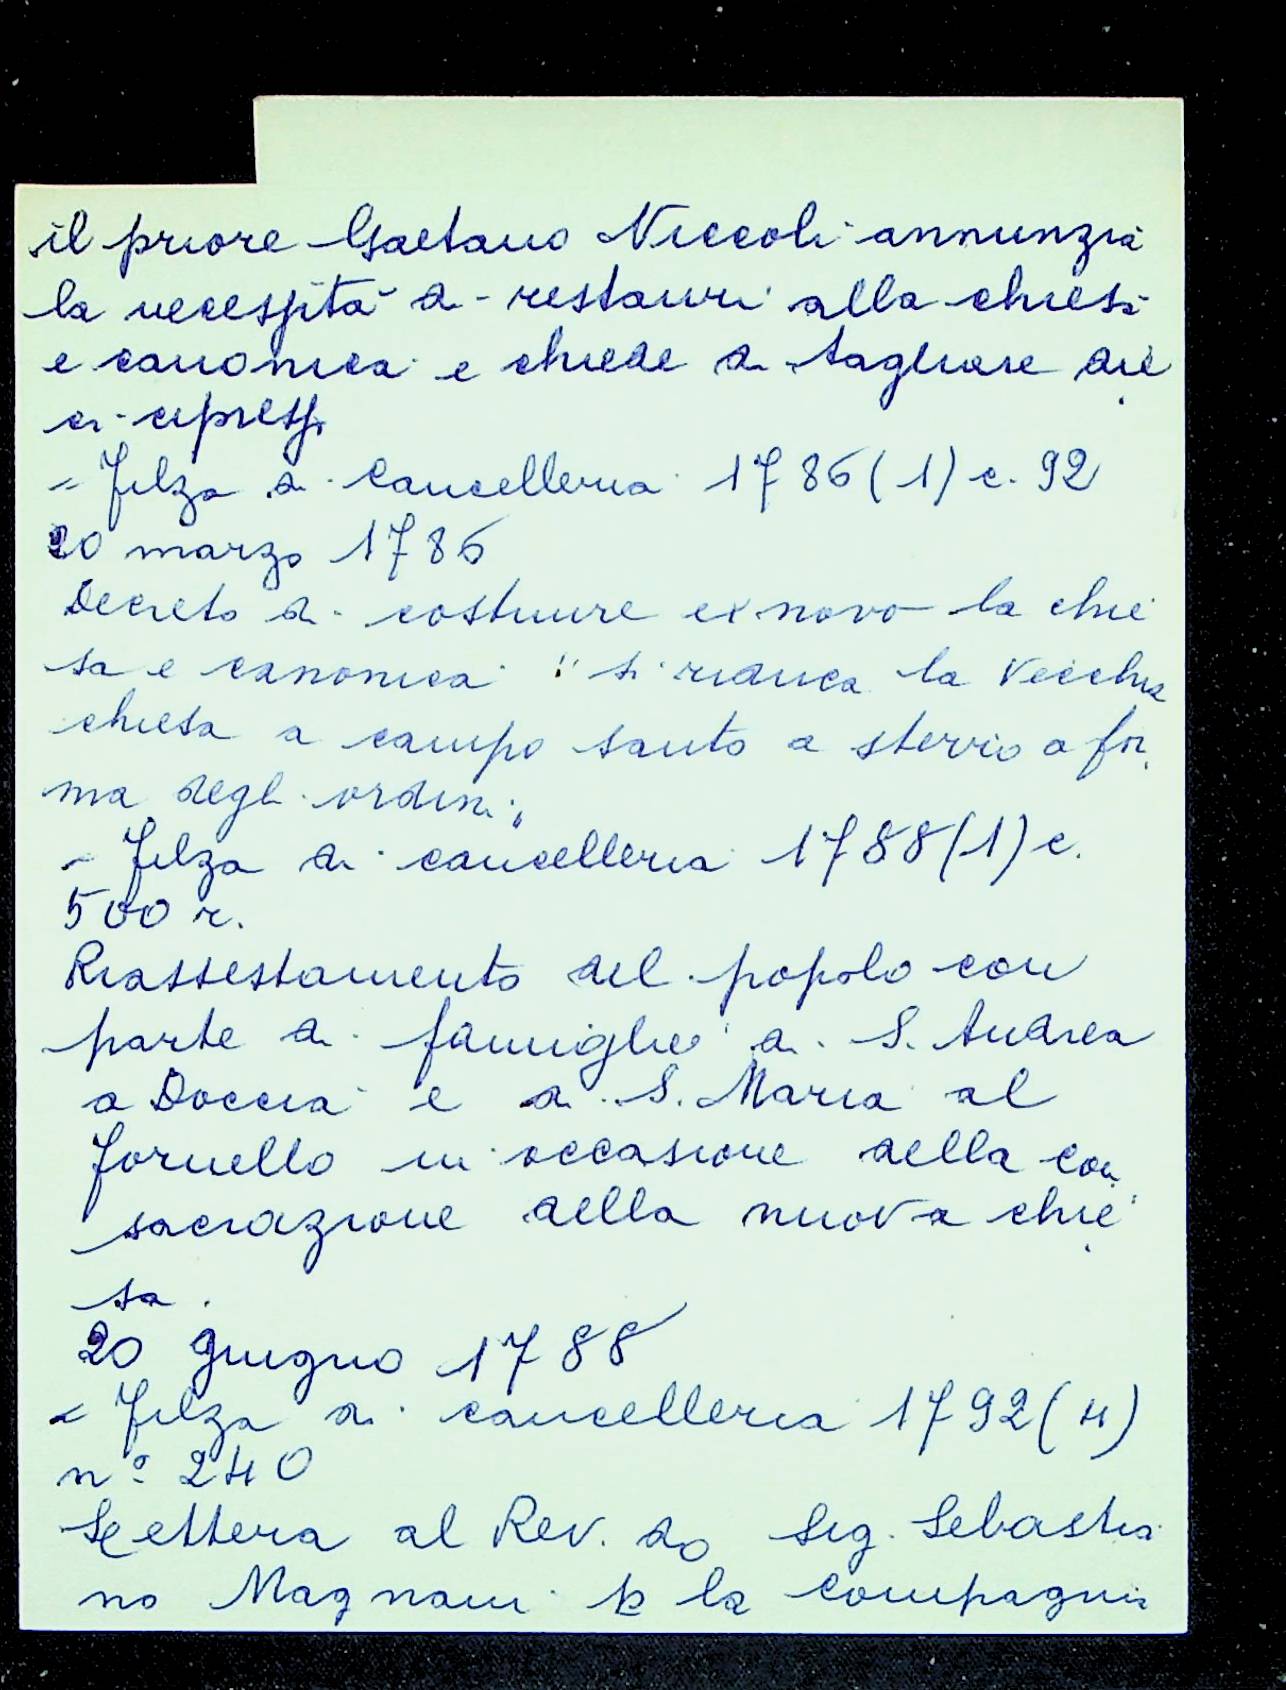 il priore Gaetano Niccoli annunzia
la necessità di restauri alla chiesa
e canonica e chiede di tagliare die
ci cipressi
- Filza di Cancelleria 1786 (1) c. 92
20 marzo 1786
Decreto di costruire ex novo la chie
sa e canonica " si riduca la vecchia
chiesa a campo santo a sterro a for
ma degli ordini "
- Filza di cancelleria 1788 (1) c.
500 r.
Riassestamento del popolo con
parte di famiglie di S. Andrea
a Doccia e di S. Maria al
Fornello in occasione della con
sacrazione della nuova chie
sa.
20 giugno 1788
- Filza di cancelleria 1792 (4)
n° 240
Lettera al Rev. do Sig. Sebastia
no Magnani p la compagnia